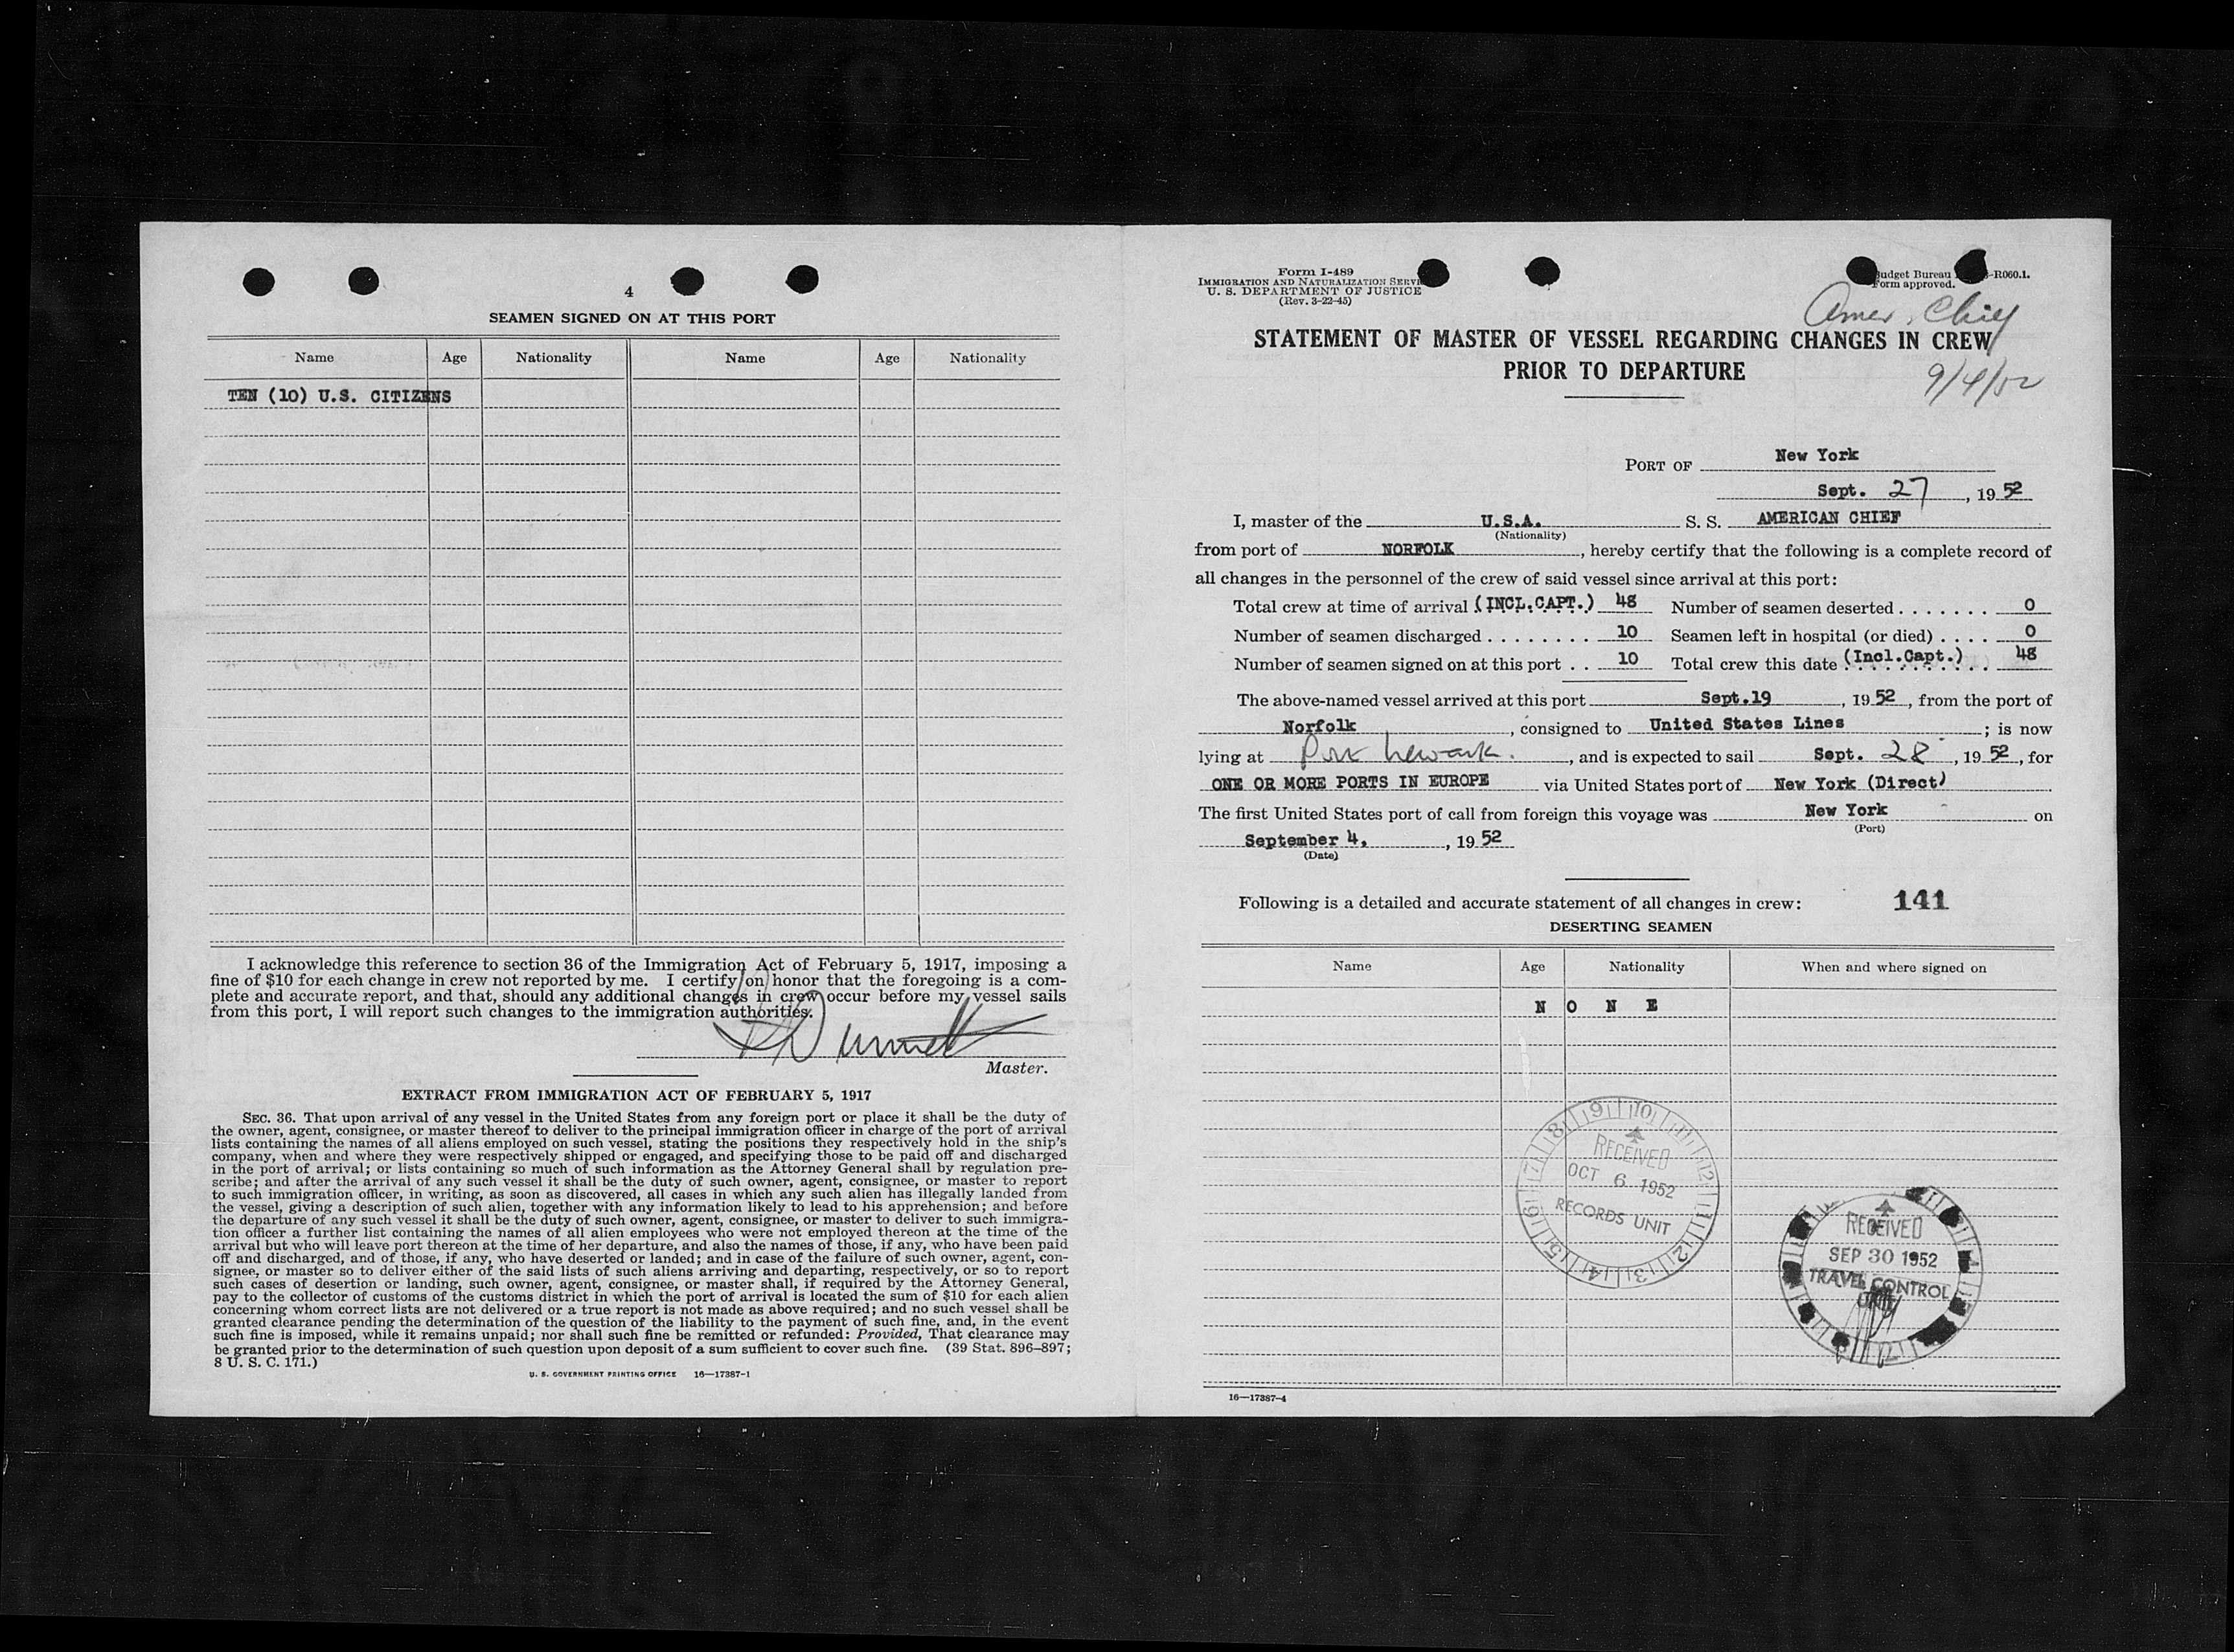 4
SEAMEN SIGNED ON AT THIS PORT
Name Age Nationality Name Age Nationality
TEN (10) U.S. CITIZENS
I acknowledge this reference to section 36 of the Immigration Act of February 5, 1917, imposing a
fine of $10 for each change in crew not reported by me. I certify on honor that the foregoing is a com-
plete and accurate report, and that, should any additional changes in crew occur before my vessel sails
from this port, I will report such changes to the immigration authorities.
Master.
EXTRACT FROM IMMIGRATION ACT OF FEBRUARY 5, 1917
SEC. 36. That upon arrival of any vessel in the United States from any foreign port or place it shall be the duty of
the owner, agent, consignee, or master thereof to deliver to the principal immigration officer in charge of the port of arrival
lists containing the names of all aliens employed on such vessel, stating the positions they respectively hold in the ship's
company, when and where they were respectively shipped or engaged, and specifying those to be paid off and discharged
in the port of arrival; or lists containing so much of such information as the Attorney General shall by regulation pre-
scribe; and after the arrival of any such vessel it shall be the duty of such owner, agent, consignee, or master to report
to such immigration officer, in writing, as soon as discovered, all cases in which any such alien has illegally landed from
the vessel, giving a description of such alien, together with any information likely to lead to his apprehension; and before
the departure of any such vessel it shall be the duty of such owner, agent, consignee, or master to deliver to such immigra-
tion officer a further list containing the names of all alien employees who were not employed thereon at the time of the
arrival but who will leave port thereon at the time of her departure, and also the names of those, if any, who have been paid
off and discharged, and of those, if any, who have deserted or landed; and in case of the failure of such owner, agent, con-
signee, or master so to deliver either of the said lists of such aliens arriving and departing, respectively, or so to report
such cases of desertion or landing, such owner, agent, consignee, or master shall, if required by the Attorney General,
pay to the collector of customs of the customs district in which the port of arrival is located the sum of $10 for each alien
concerning whom correct lists are not delivered or a true report is not made as above required; and no such vessel shall be
granted clearance pending the determination of the question of the liability to the payment of such fine, and, in the event
such fine is imposed, while it remains unpaid; nor shall such fine be remitted or refunded: Provided, That clearance may
be granted prior to the determination of such question upon deposit of a sum sufficient to cover such fine. (39 Stat. 896–897;
8 U. S. C. 171.)
U. S. GOVERNMENT PRINTING OFFICE 16—17387-1
Form I-489
IMMIGRATION AND NATURALIZATION
U. S. DEPARTMENT OF JUSTICE
(Rev. 3-22-45)
Budget Bureau -R060.1.
Form approved.
Amer. Chief
STATEMENT OF MASTER OF VESSEL REGARDING CHANGES IN CREW
PRIOR TO DEPARTURE
9/4/52
PORT OF New York
Sept. 27, 1952
I, master of the U.S.A. S. S. AMERICAN CHIEF
(Nationality)
from port of NORFOLK, hereby certify that the following is a complete record of
all changes in the personnel of the crew of said vessel since arrival at this port:
Total crew at time of arrival (INCL.CAPT.) 48 Number of seamen deserted . . . . . . . 0
Number of seamen discharged . . . . . . . . 10 Seamen left in hospital (or died) . . . . 0
Number of seamen signed on at this port . . 10 Total crew this date (Incl.Capt.) 48
The above-named vessel arrived at this port Sept.19, 1952, from the port of
Norfolk, consigned to United States Lines; is now
lying at Port Newark., and is expected to sail Sept. 28, 1952, for
ONE OR MORE PORTS IN EUROPE via United States port of New York (Direct)
The first United States port of call from foreign this voyage was New York on
(Port)
September 4, , 1952
(Date)
Following is a detailed and accurate statement of all changes in crew: 141
DESERTING SEAMEN
Name Age Nationality When and where signed on
N O N E
9 10 11 12 1 2 3 4 5 6 7 8
RECEIVED
OCT 6 1952
RECORDS UNIT
RECEIVED
SEP 30 1952
TRAVEL CONTROL
UNIT
16—17387-4